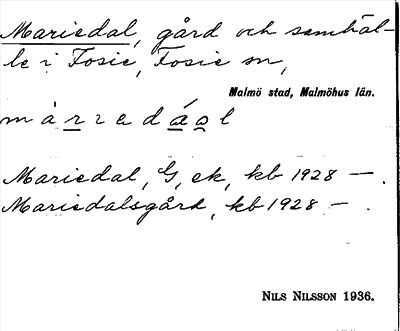 Mariedal, gård och samhäl-
le i Fosie, Fosie sn,
Malmö stad, Malmöhus län.
m à r r e d á o l
Mariedal, G, ek, kb 1928 — .
Mariedalsgård, kb 1928 — .
NILS NILSSON 1936.